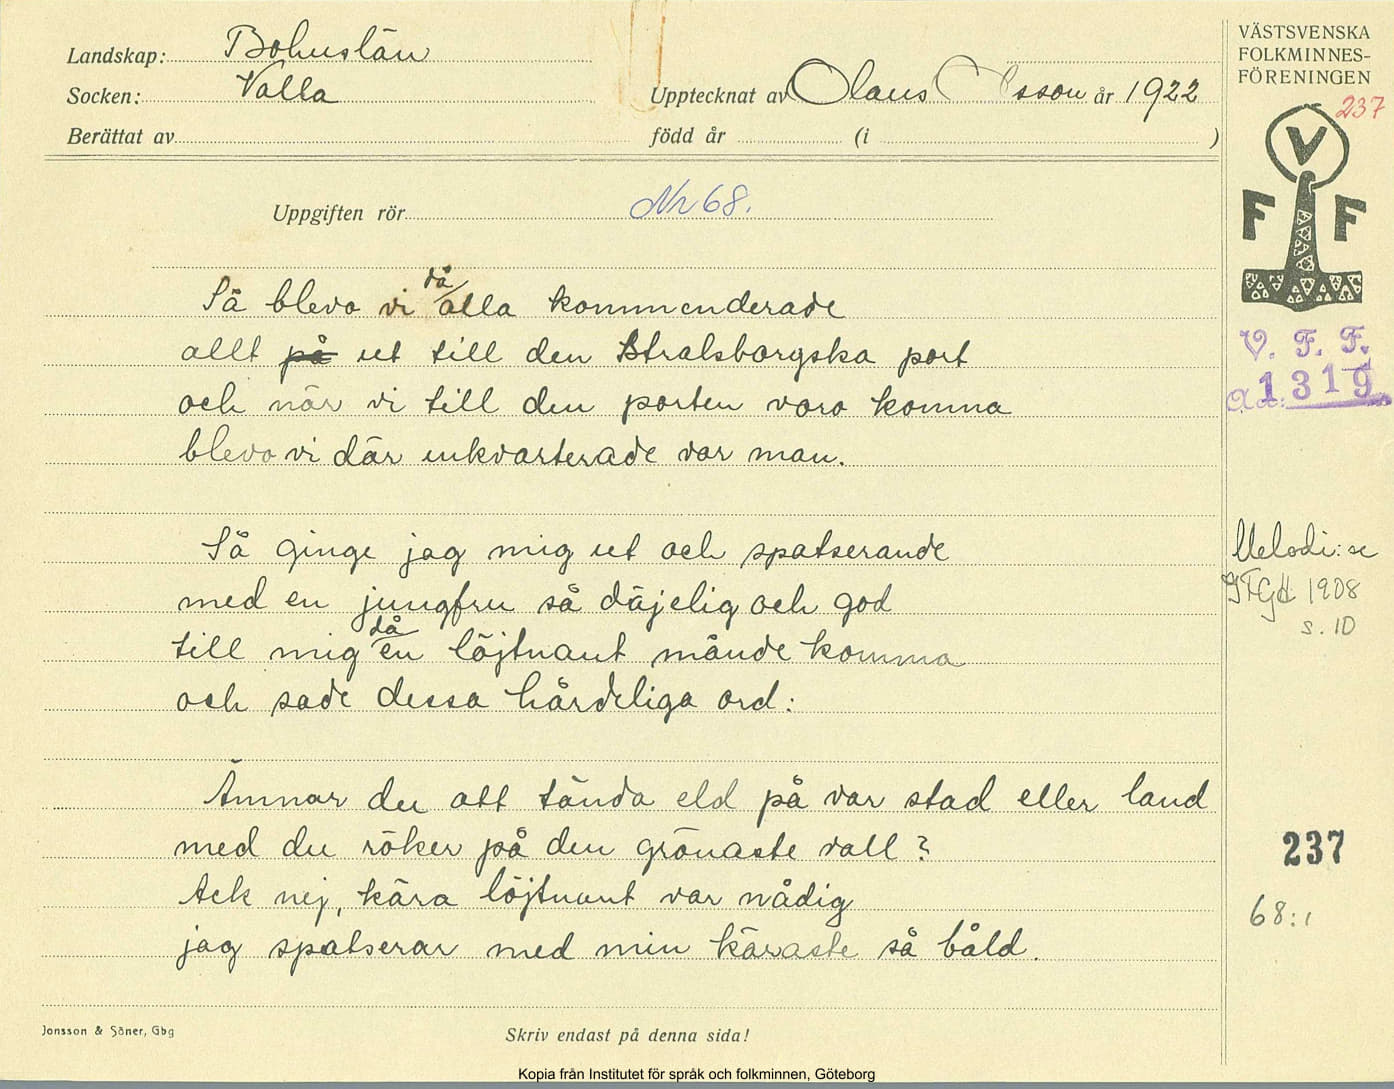 Landskap: Bohuslän
Socken: Valla
Upptecknat av Olaus Olsson år 1922
Berättat av
född år (i )
VÄSTSVENSKA
FOLKMINNES-
FÖRENINGEN
237
V
F F
V. F. F.
1319
Uppgiften rör Nr 68.
då
Så blevo vi alla kommenderade
allt på ut till den Stralsborgska port
och när vi till den porten voro komna
blevo vi där inkvarterade var man.
Så ginge jag mig ut och spatserande
med en jungfru så däjelig och god
då
till mig en löjtnant månde komma
och sade dessa hårdeliga ord:
Ämnar du att tända eld på var stad eller land
med du röker på den grönaste vall?
Ack nej, kära löjtnant var nådig
jag spatserar med min käraste så båld.
Melodi: se
1908
s. 10
237
68:1
Jonsson & Söner, Gbg
Skriv endast på denna sida!
Kopia från Institutet för språk och folkminnen, Göteborg